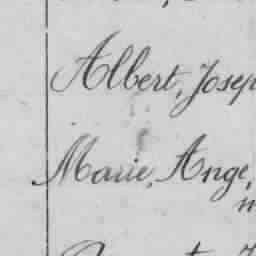 Albert, Josep
Marie, Ange,